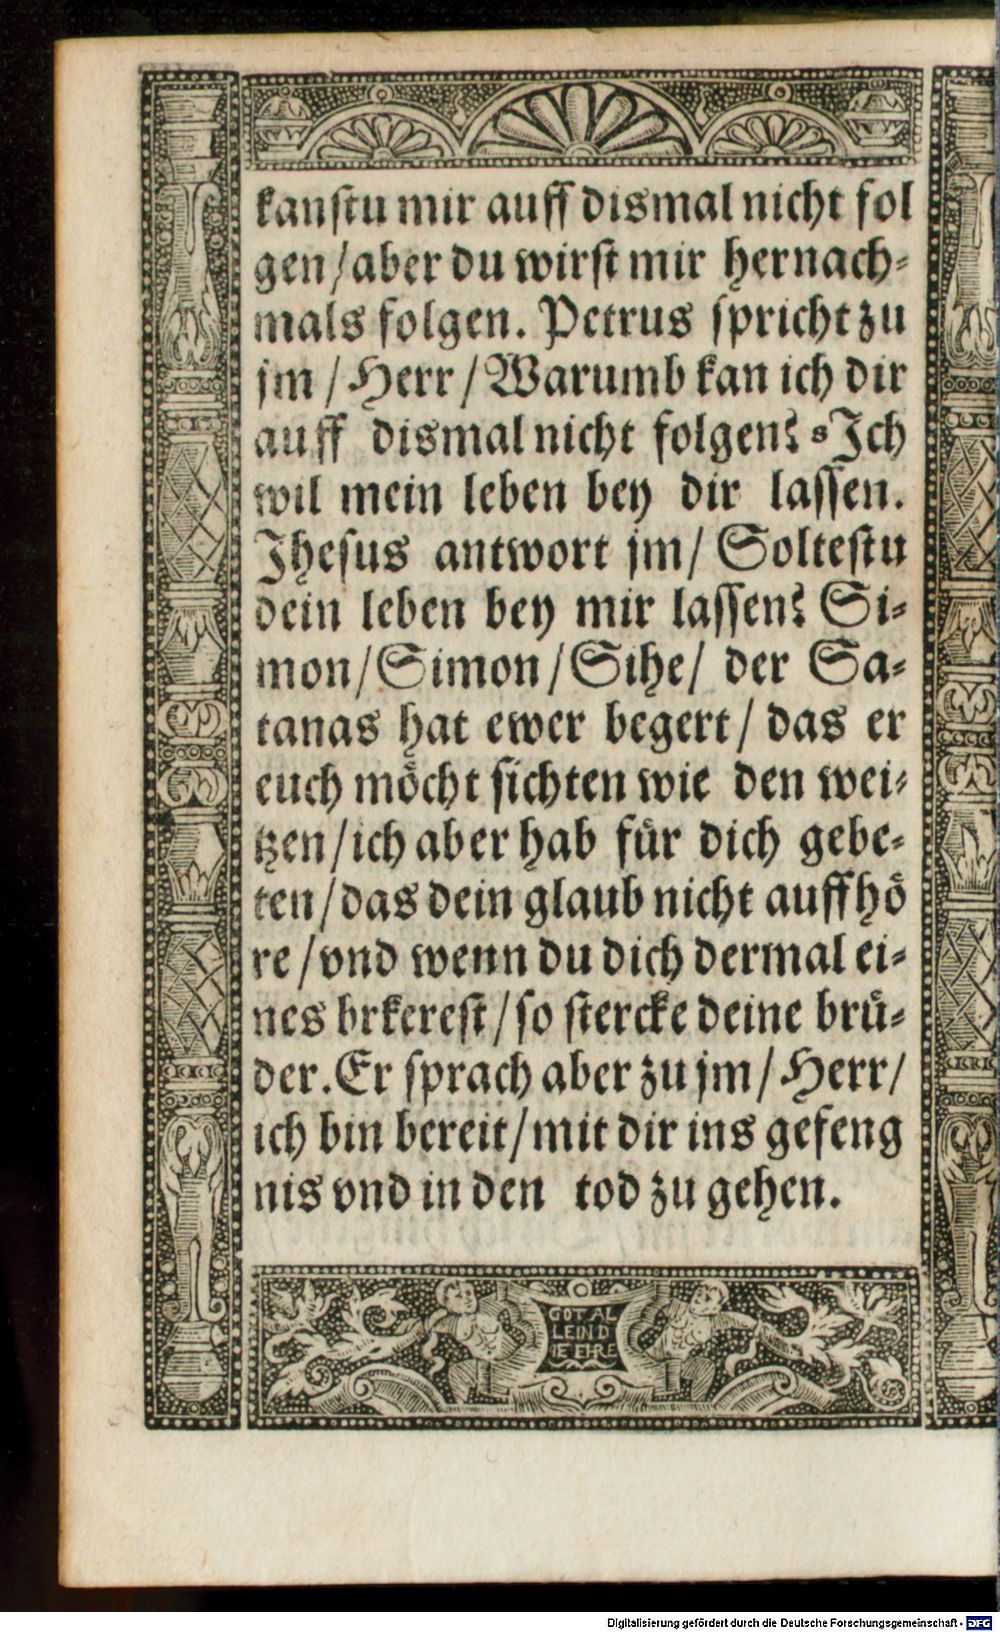 kanſtu mir auff dismal nicht fol
gen/aber du wirſt mir hernach⸗
mals folgen. Petrus ſpricht zu
jm / Herr / Warumb kan ich dir
auff dismal nicht folgen? Ich
wil mein leben bey dir laſſen.
Jheſus antwort jm/ Solteſtu
dein leben bey mir laſſen? Si⸗
mon/Simon/Sihe/ der Sa⸗
tanas hat ewer begert/ das er
euch möcht ſichten wie den wei⸗
tzen/ich aber hab für dich gebe⸗
ten/das dein glaub nicht auffhö
re/vnd wenn du dich dermal ei⸗
nes brkereſt/ſo ſtercke deine brü⸗
der. Er ſprach aber zu jm/Herr/
ich bin bereit/mit dir ins gefeng
nis vnd in den tod zu gehen.
GOT AL
LEIN D
IE EHRE
Digitalisierung gefördert durch die Deutsche Forschungsgemeinschaft - DFG